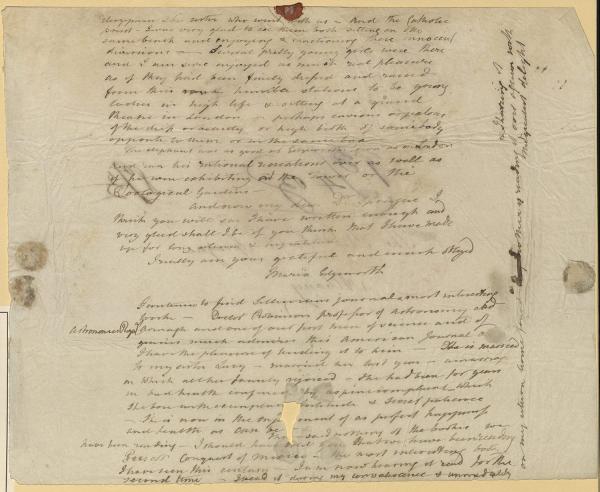 clergyman the rector who went with us – And the Catholic
priest – I was very glad to see them both sitting on the
same bench and enjoying & sanctioning these innocent
diversions – Several pretty young girls were there
and I am sure enjoyed as much real pleasure
as if they had been finely dressed and raised
from their humble stations to be young
ladies in high life & sitting at a grand
theatre in London – perhaps envious or jealous
of the dress or beauty or high birth of somebody
opposite to them or in the same box
The elephant was as good as
and ran his rational as well as
if he were exhibiting at the Tower or the
Zoological Gardens –
And now my dear Dr Sprague I
think you will say I have written enough and
very glad shall I be if you think that I have made
up for long silence &
I really am your grateful and much obliged
Maria Edgeworth
I continue to find Silliman's journal a most interesting
work – Doctor Robinson professor of Astronomy at
Astronomer Royal
Armagh and one of our first men of science and of
genius much admires this American Journal &
I have the pleasure of lending it to him – He is married
to my sister Lucy – married her last year – a marriage
in which all her family rejoiced – She had been for years
in bad health confined by a spine complaint which
She bore with exemplary fortitude & sweet patience
– She is now in the enjoyment of as perfect happiness
and health as can be –
I have said nothing of the books we
have been reading – I should have told you that we have been reading
Conquest of Mexico – the most interesting book
I have seen this century – I am now hearing it read for the
second time – I read it during my convalescence & immediately
on my return home
hearing it
reading it over again with
delight